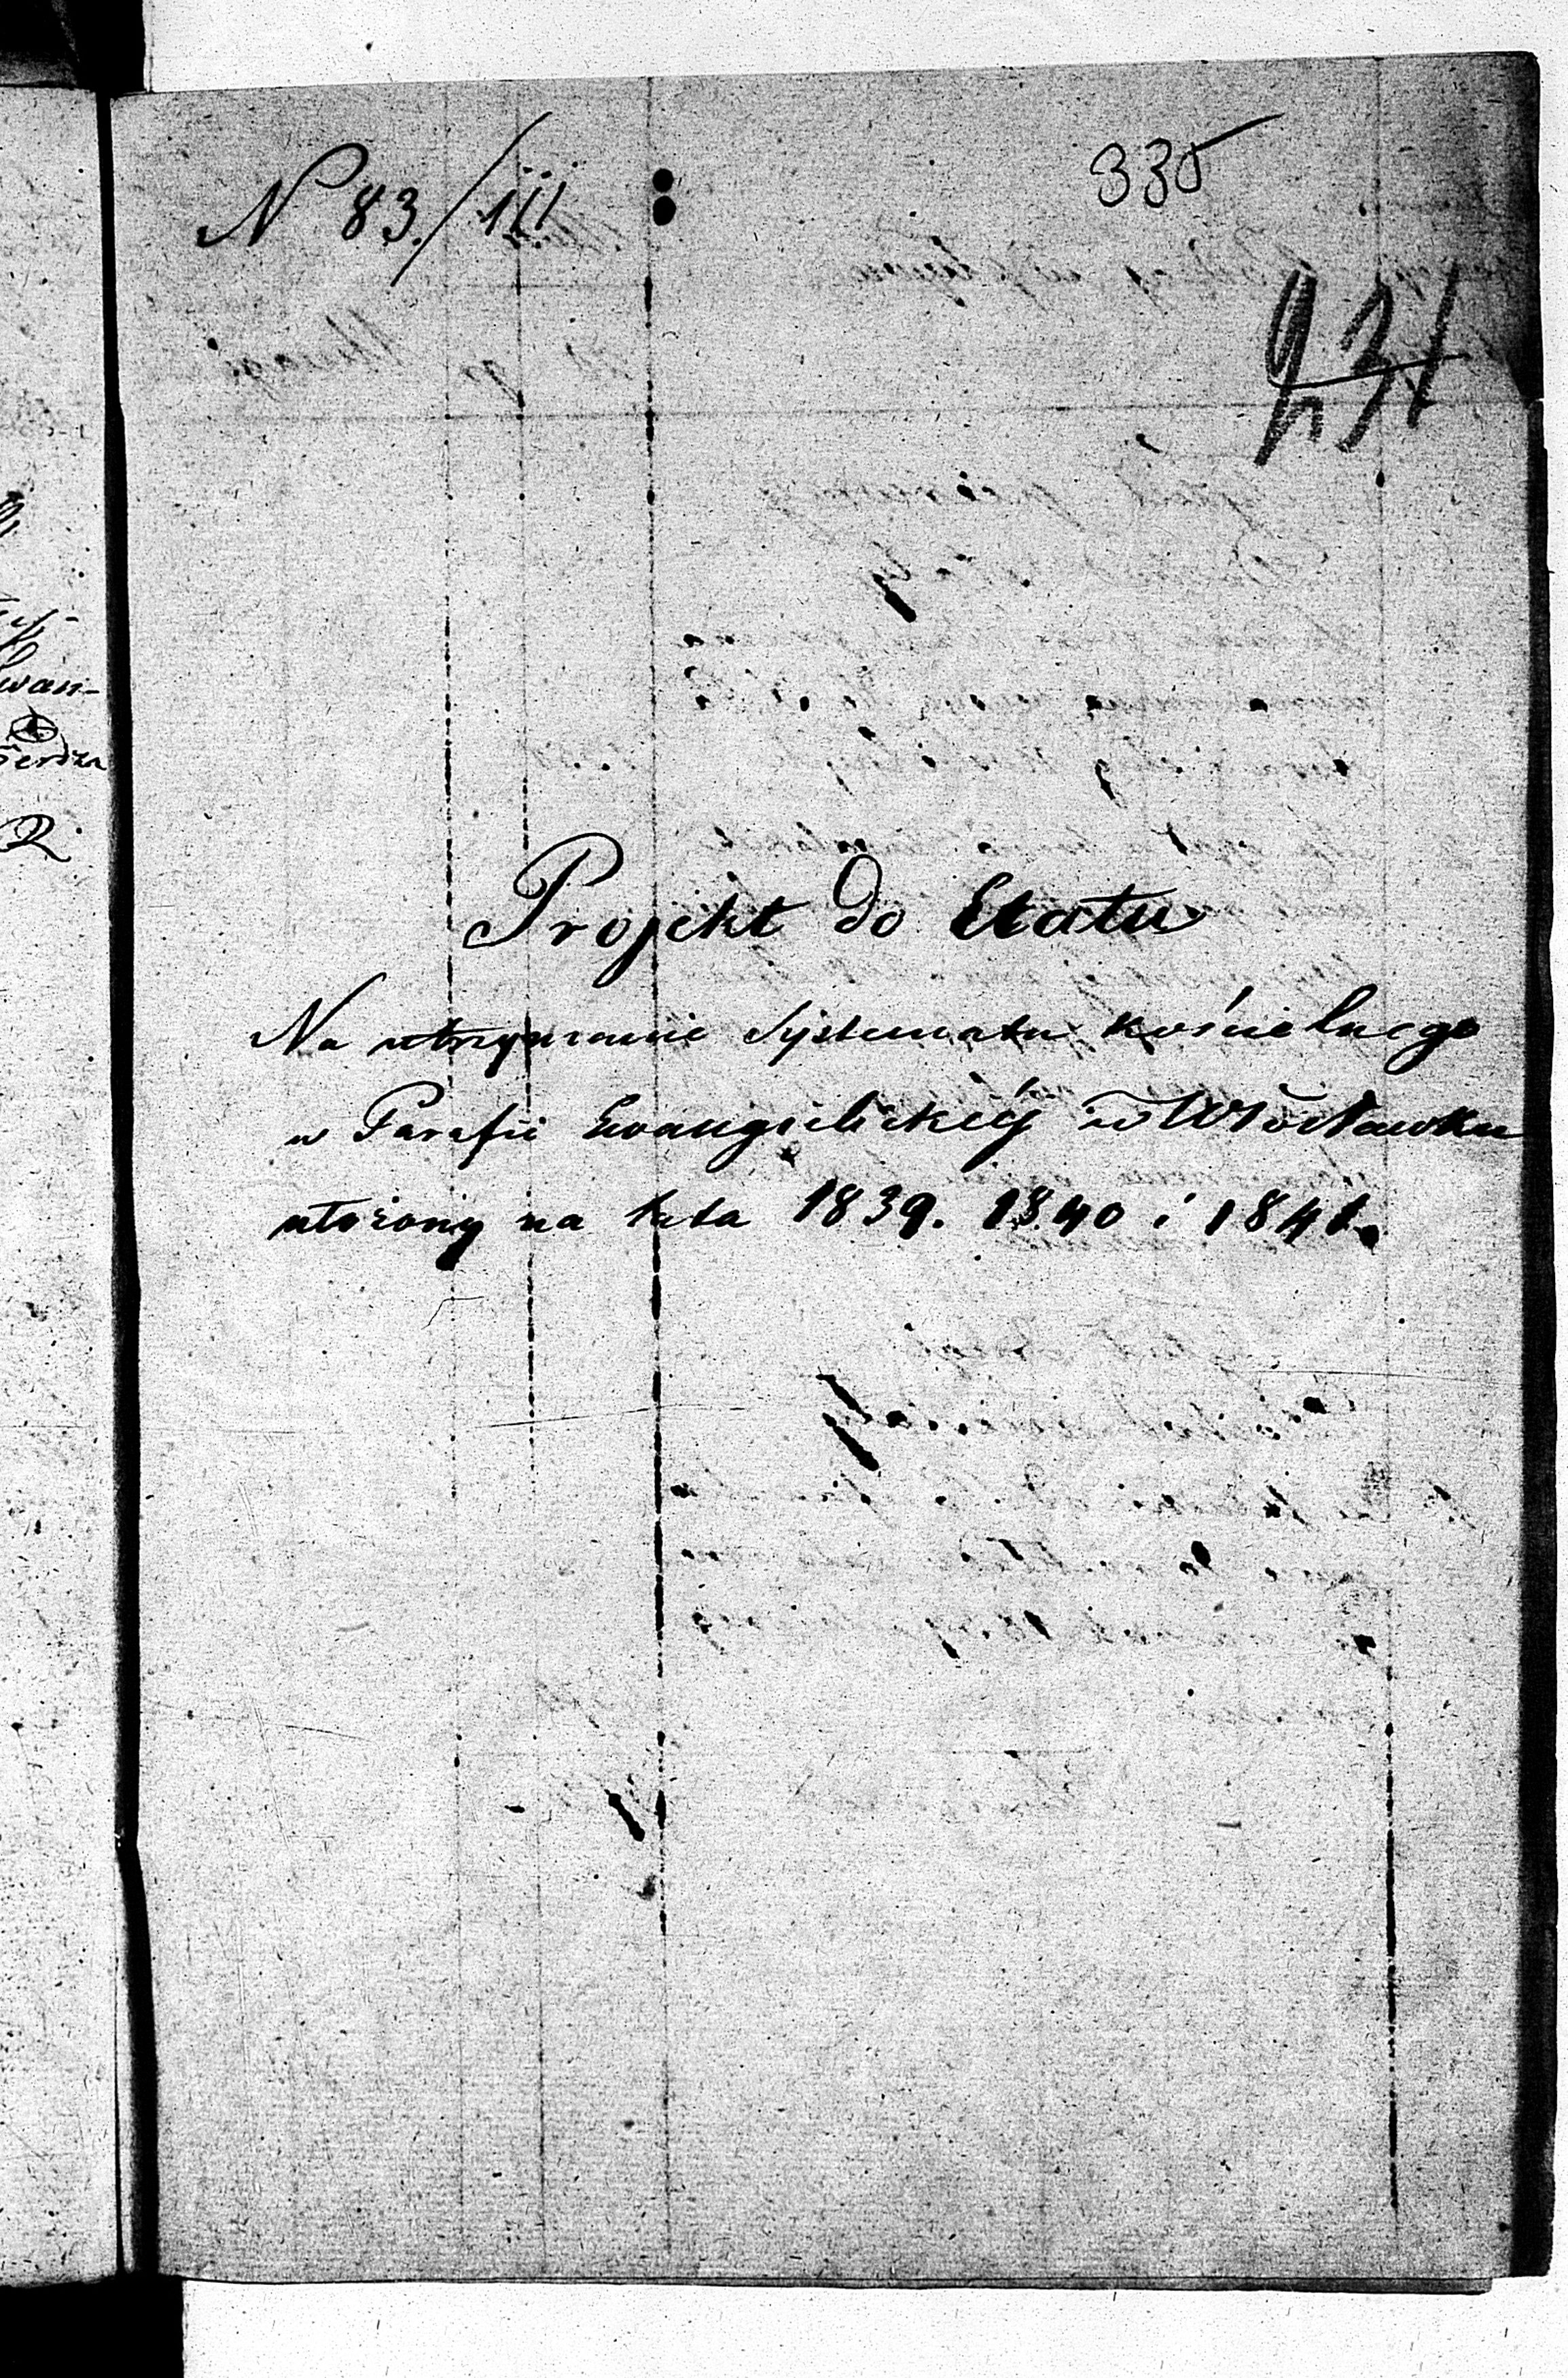 N 83./III
335
231
Projekt do Etatu
Na utrzymanie Systematu kościelnego
w Parafii Ewangielickiéj w Włocławku
ułożony na lata 1839. 1840 i 1841.